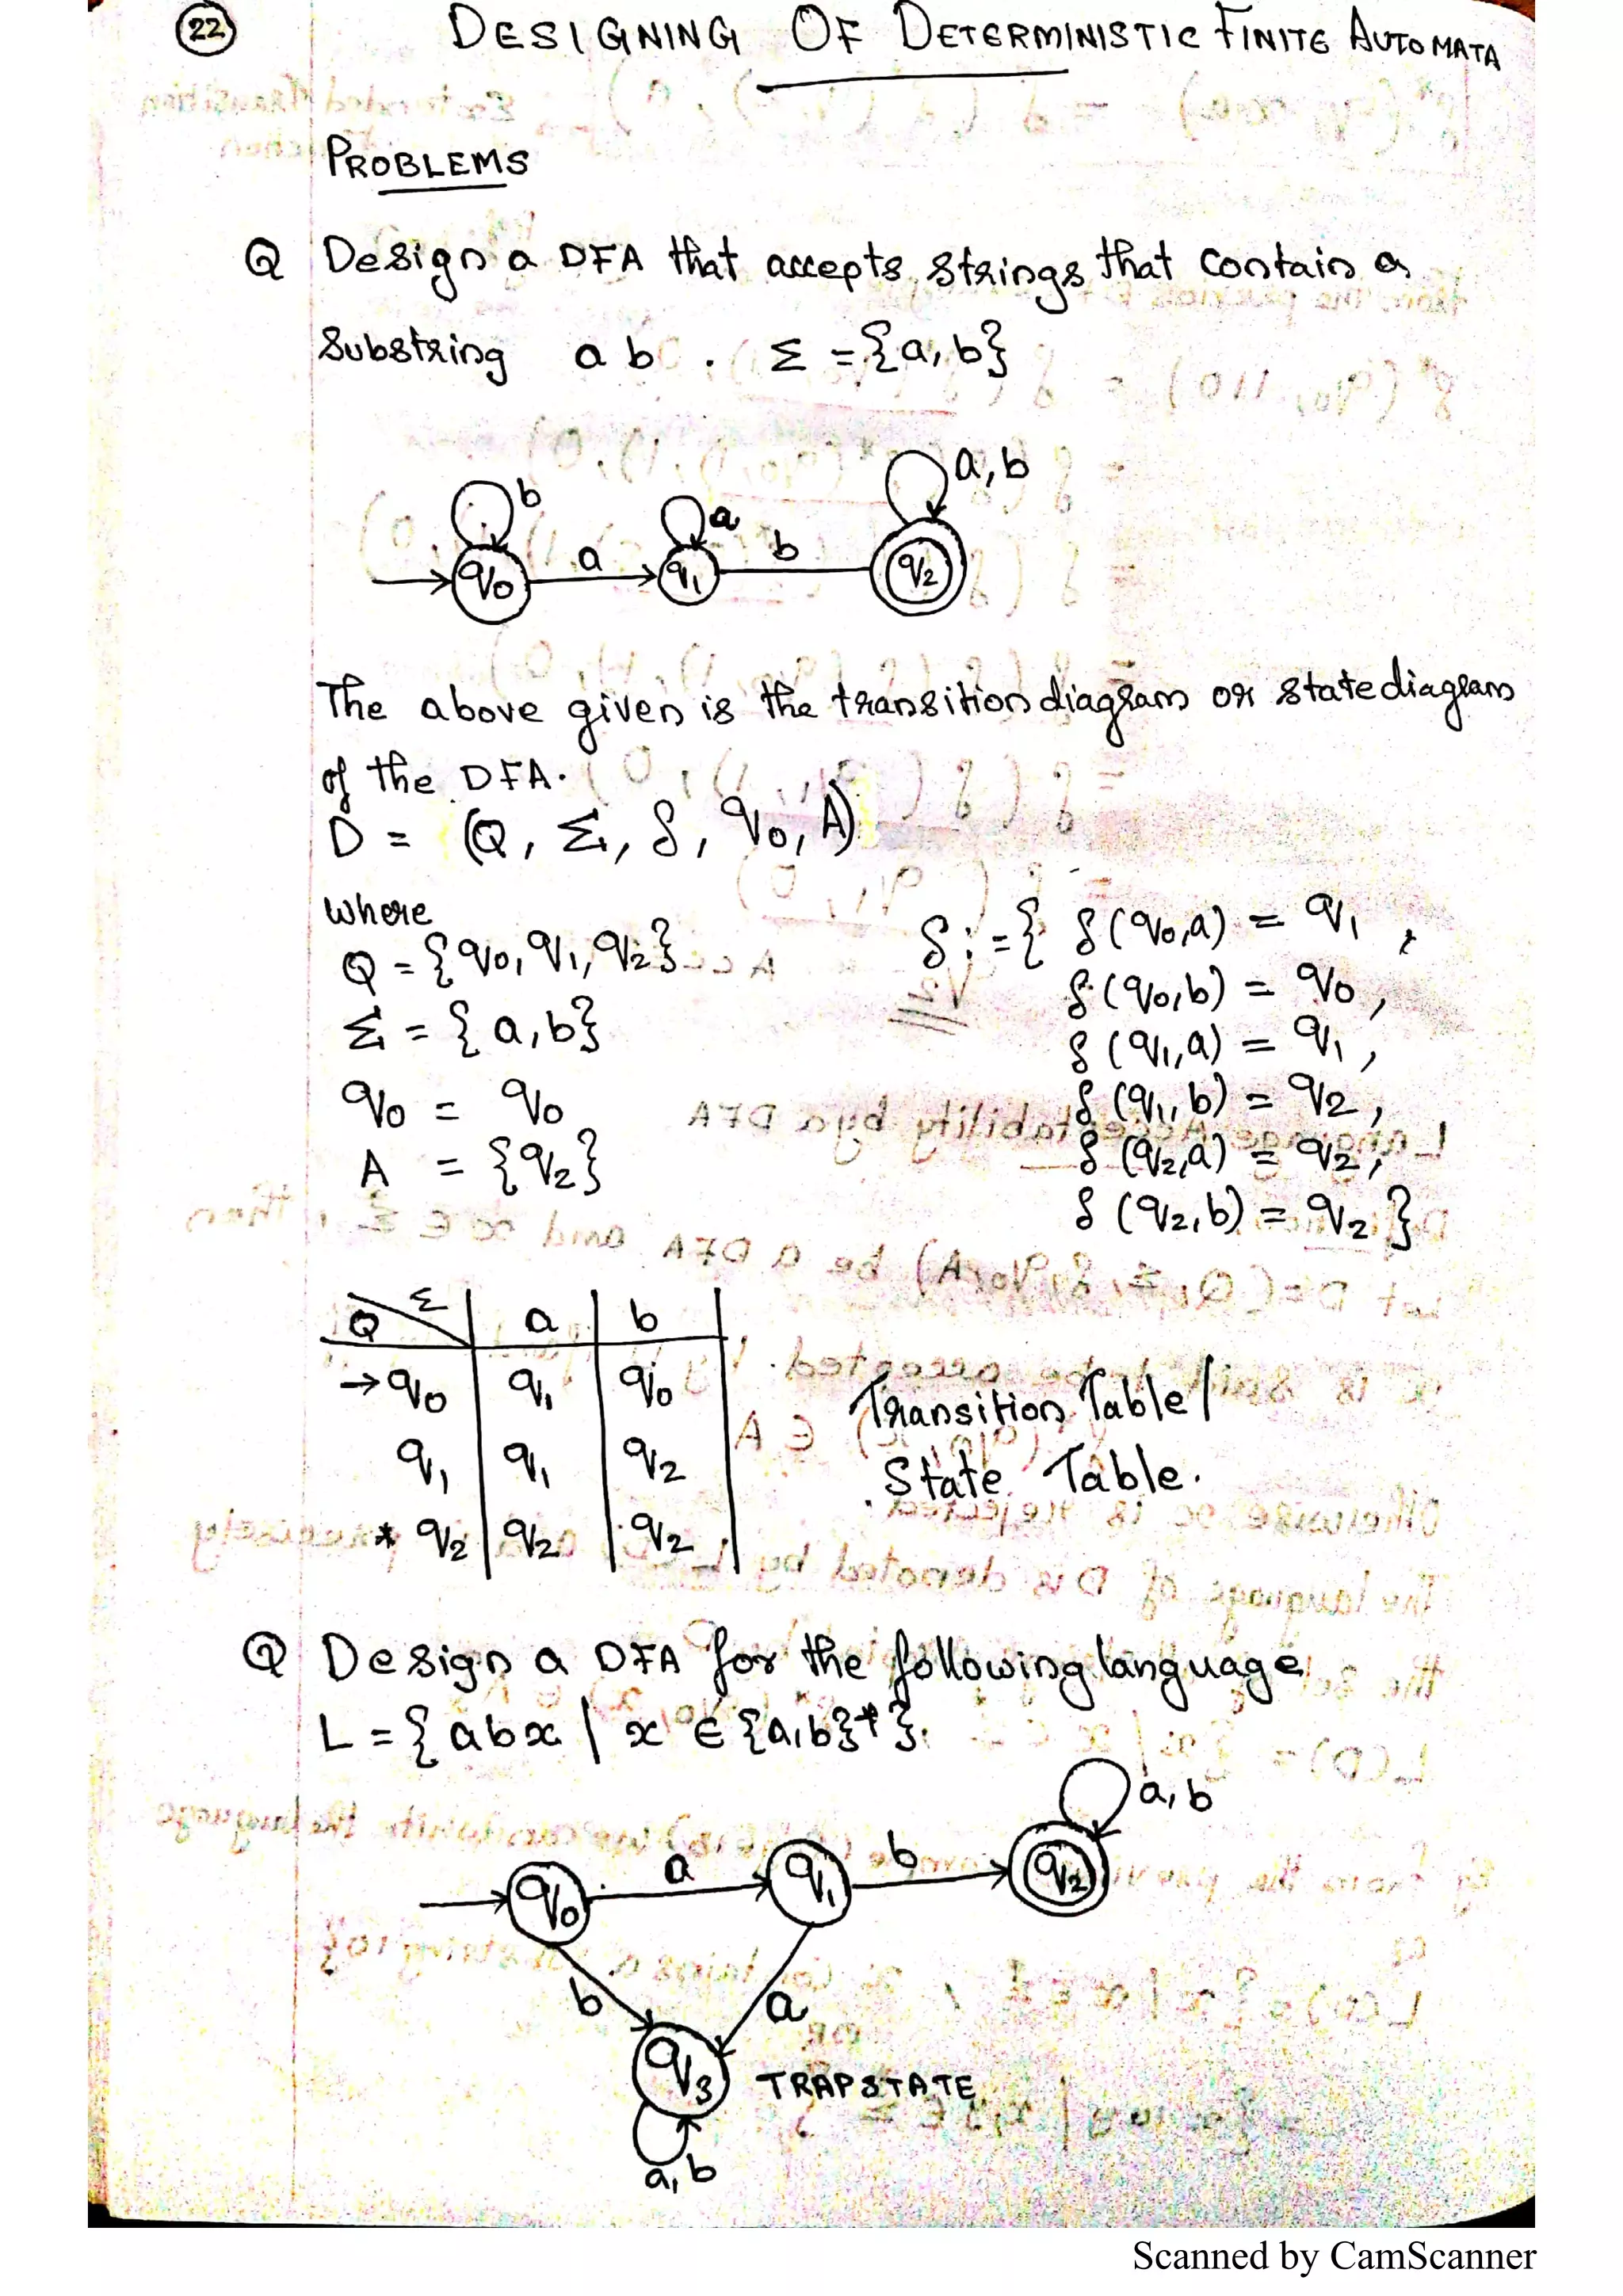 22
DESIGNING OF DETERMINISTIC FINITE AUTOMATA
PROBLEMS
Q Design a DFA that accepts strings that contain a
substring ab. Σ = {a, b}
b a a b a, b
q0 q1 q2
The above given is the transition diagram or state diagram
of the DFA.
D = (Q, Σ, δ, q0, A)
where
Q = {q0, q1, q2}
Σ = {a, b}
q0 = q0
A = {q2}
δ: = { δ(q0,a) = q1,
δ(q0,b) = q0,
δ(q1,a) = q1,
δ(q1,b) = q2,
δ(q2,a) = q2,
δ(q2,b) = q2 }
Q Σ a b
→q0 q1 q0
q1 q1 q2
* q2 q2 q2
Transition Table/
State Table.
Q Design a DFA for the following language
L = {abx | x ∈ {a,b}*}.
a, b
q0 a q1 b q2
b a
q3 TRAPSTATE
a, b
Scanned by CamScanner